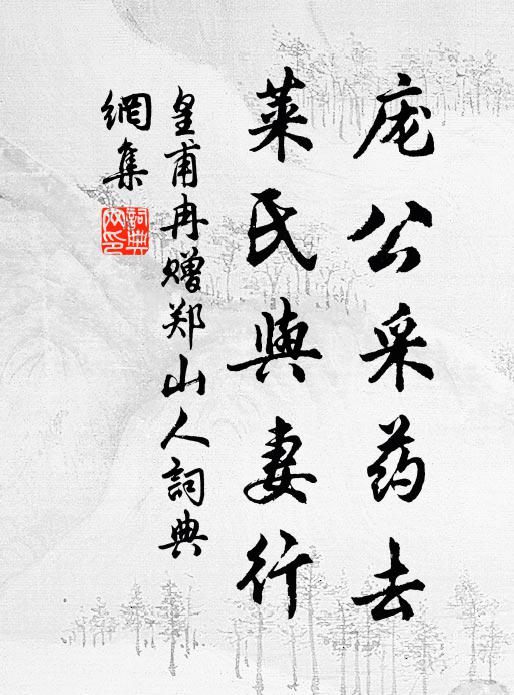 庞公采药去
莱氏與妻行
皇甫冉赠郑山人詞典
網集
詞典
网印